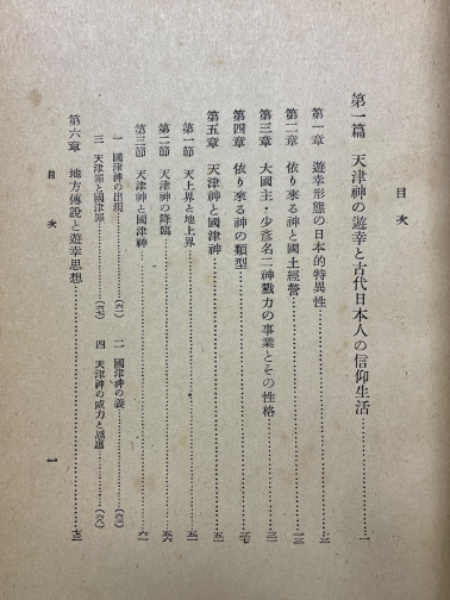 目次
第一篇 天津神の遊幸と古代日本人の信仰生活……一
第一章 遊幸形態の日本的特異性……三
第二章 依り來る神と國土經營……一三
第三章 大國主・少彥名二神戮力の事業とその性格……三一
第四章 依り來る神の類型……三七
第五章 天津神と國津神……五一
第一節 天上界と地上界……五一
第二節 天津神の降臨……五六
第三節 天津神と國津神……六一
一 國津神の出現……(六一) 二 國津神の義……(六三)
三 天津罪と國津罪……(六七) 四 天津神の威力と恩惠……(六八)
第六章 地方傳說と遊幸思想……七三
目次 一